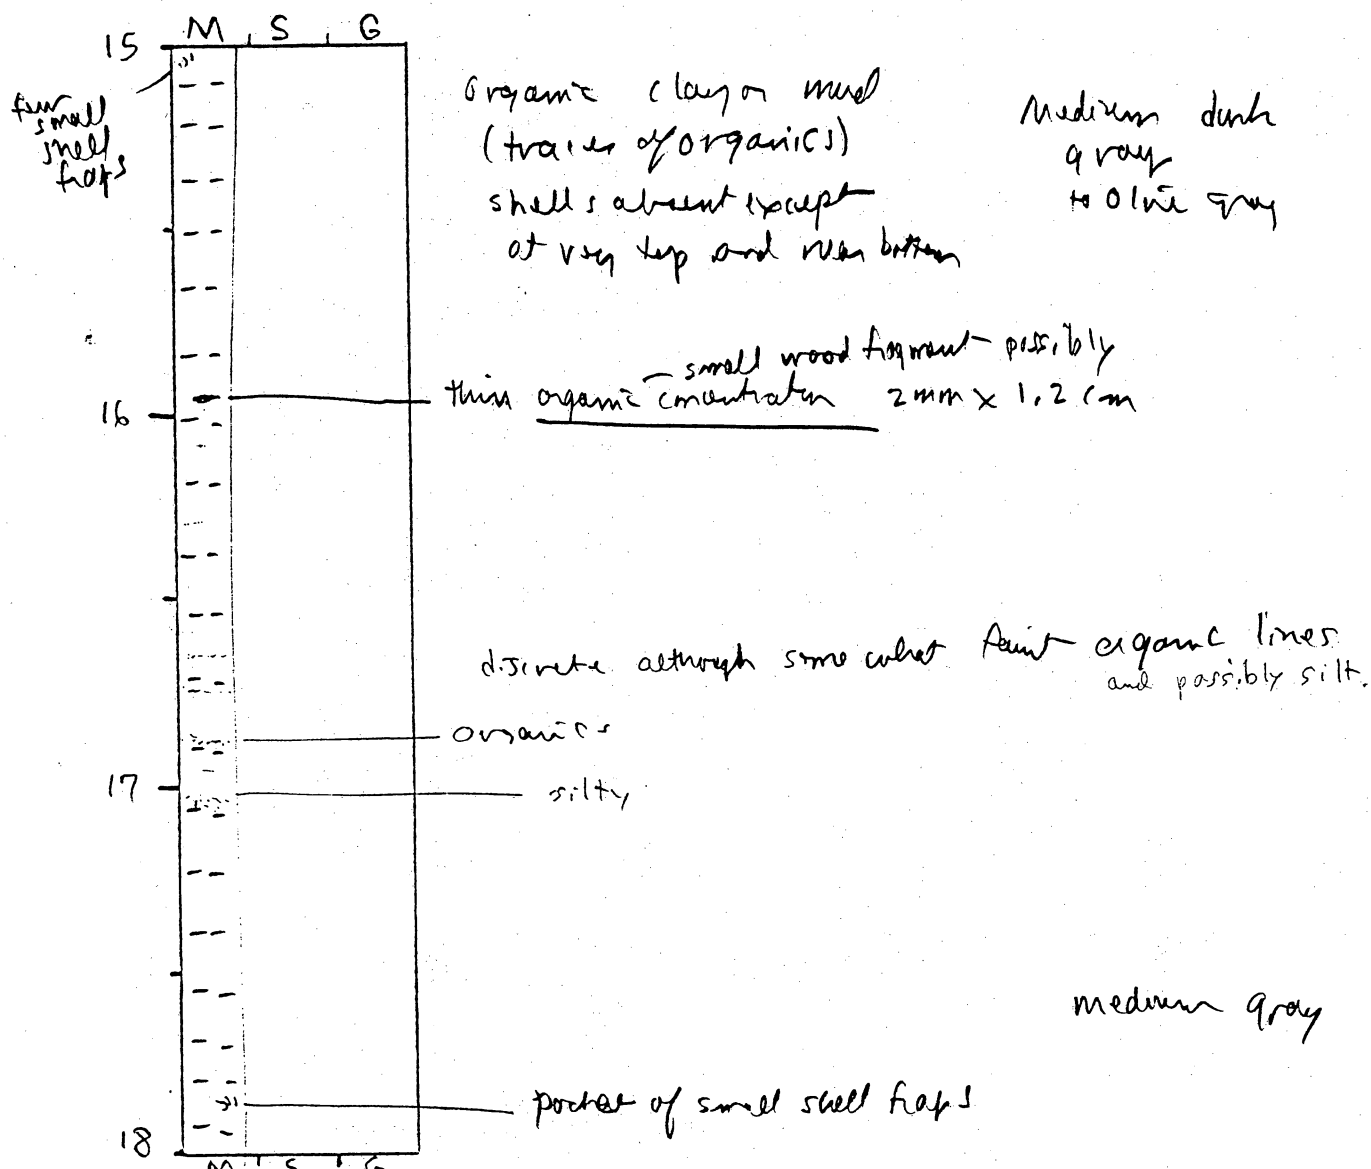 M S G
15
few
small
shell
frags
organic clay or mud
(traces of organics)
shells absent except
at very top and near bottom
Medium dark
gray
to olive gray
small wood fragment possibly
thin organic concentration 2mm x 1.2 cm
16
discrete although somewhat faint organic lines
and possibly silt.
organics
17
silty
medium gray
pocket of small shell frags
18
M S G